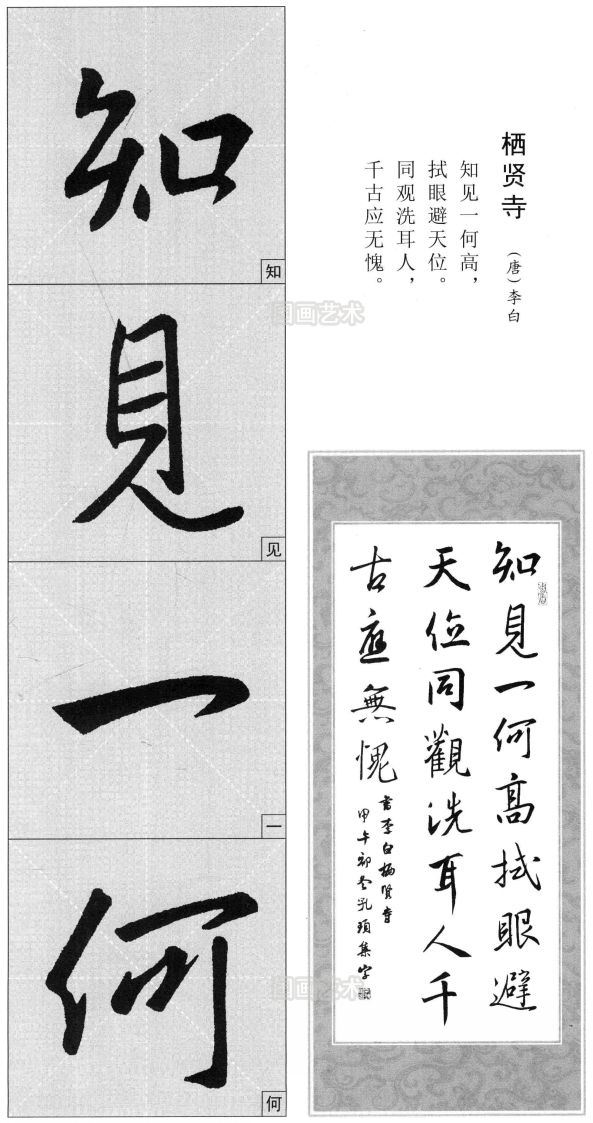 栖贤寺
（唐）李白
知见一何高，
拭眼避天位。
同观洗耳人，
千古应无愧。
知
知
見
见
一
一
何
何
知見一何高拭眼避
天位同觀洗耳人千
古應無愧
書李白栖賢寺
甲午初冬孔頊集字
囡画艺术
囡画艺术